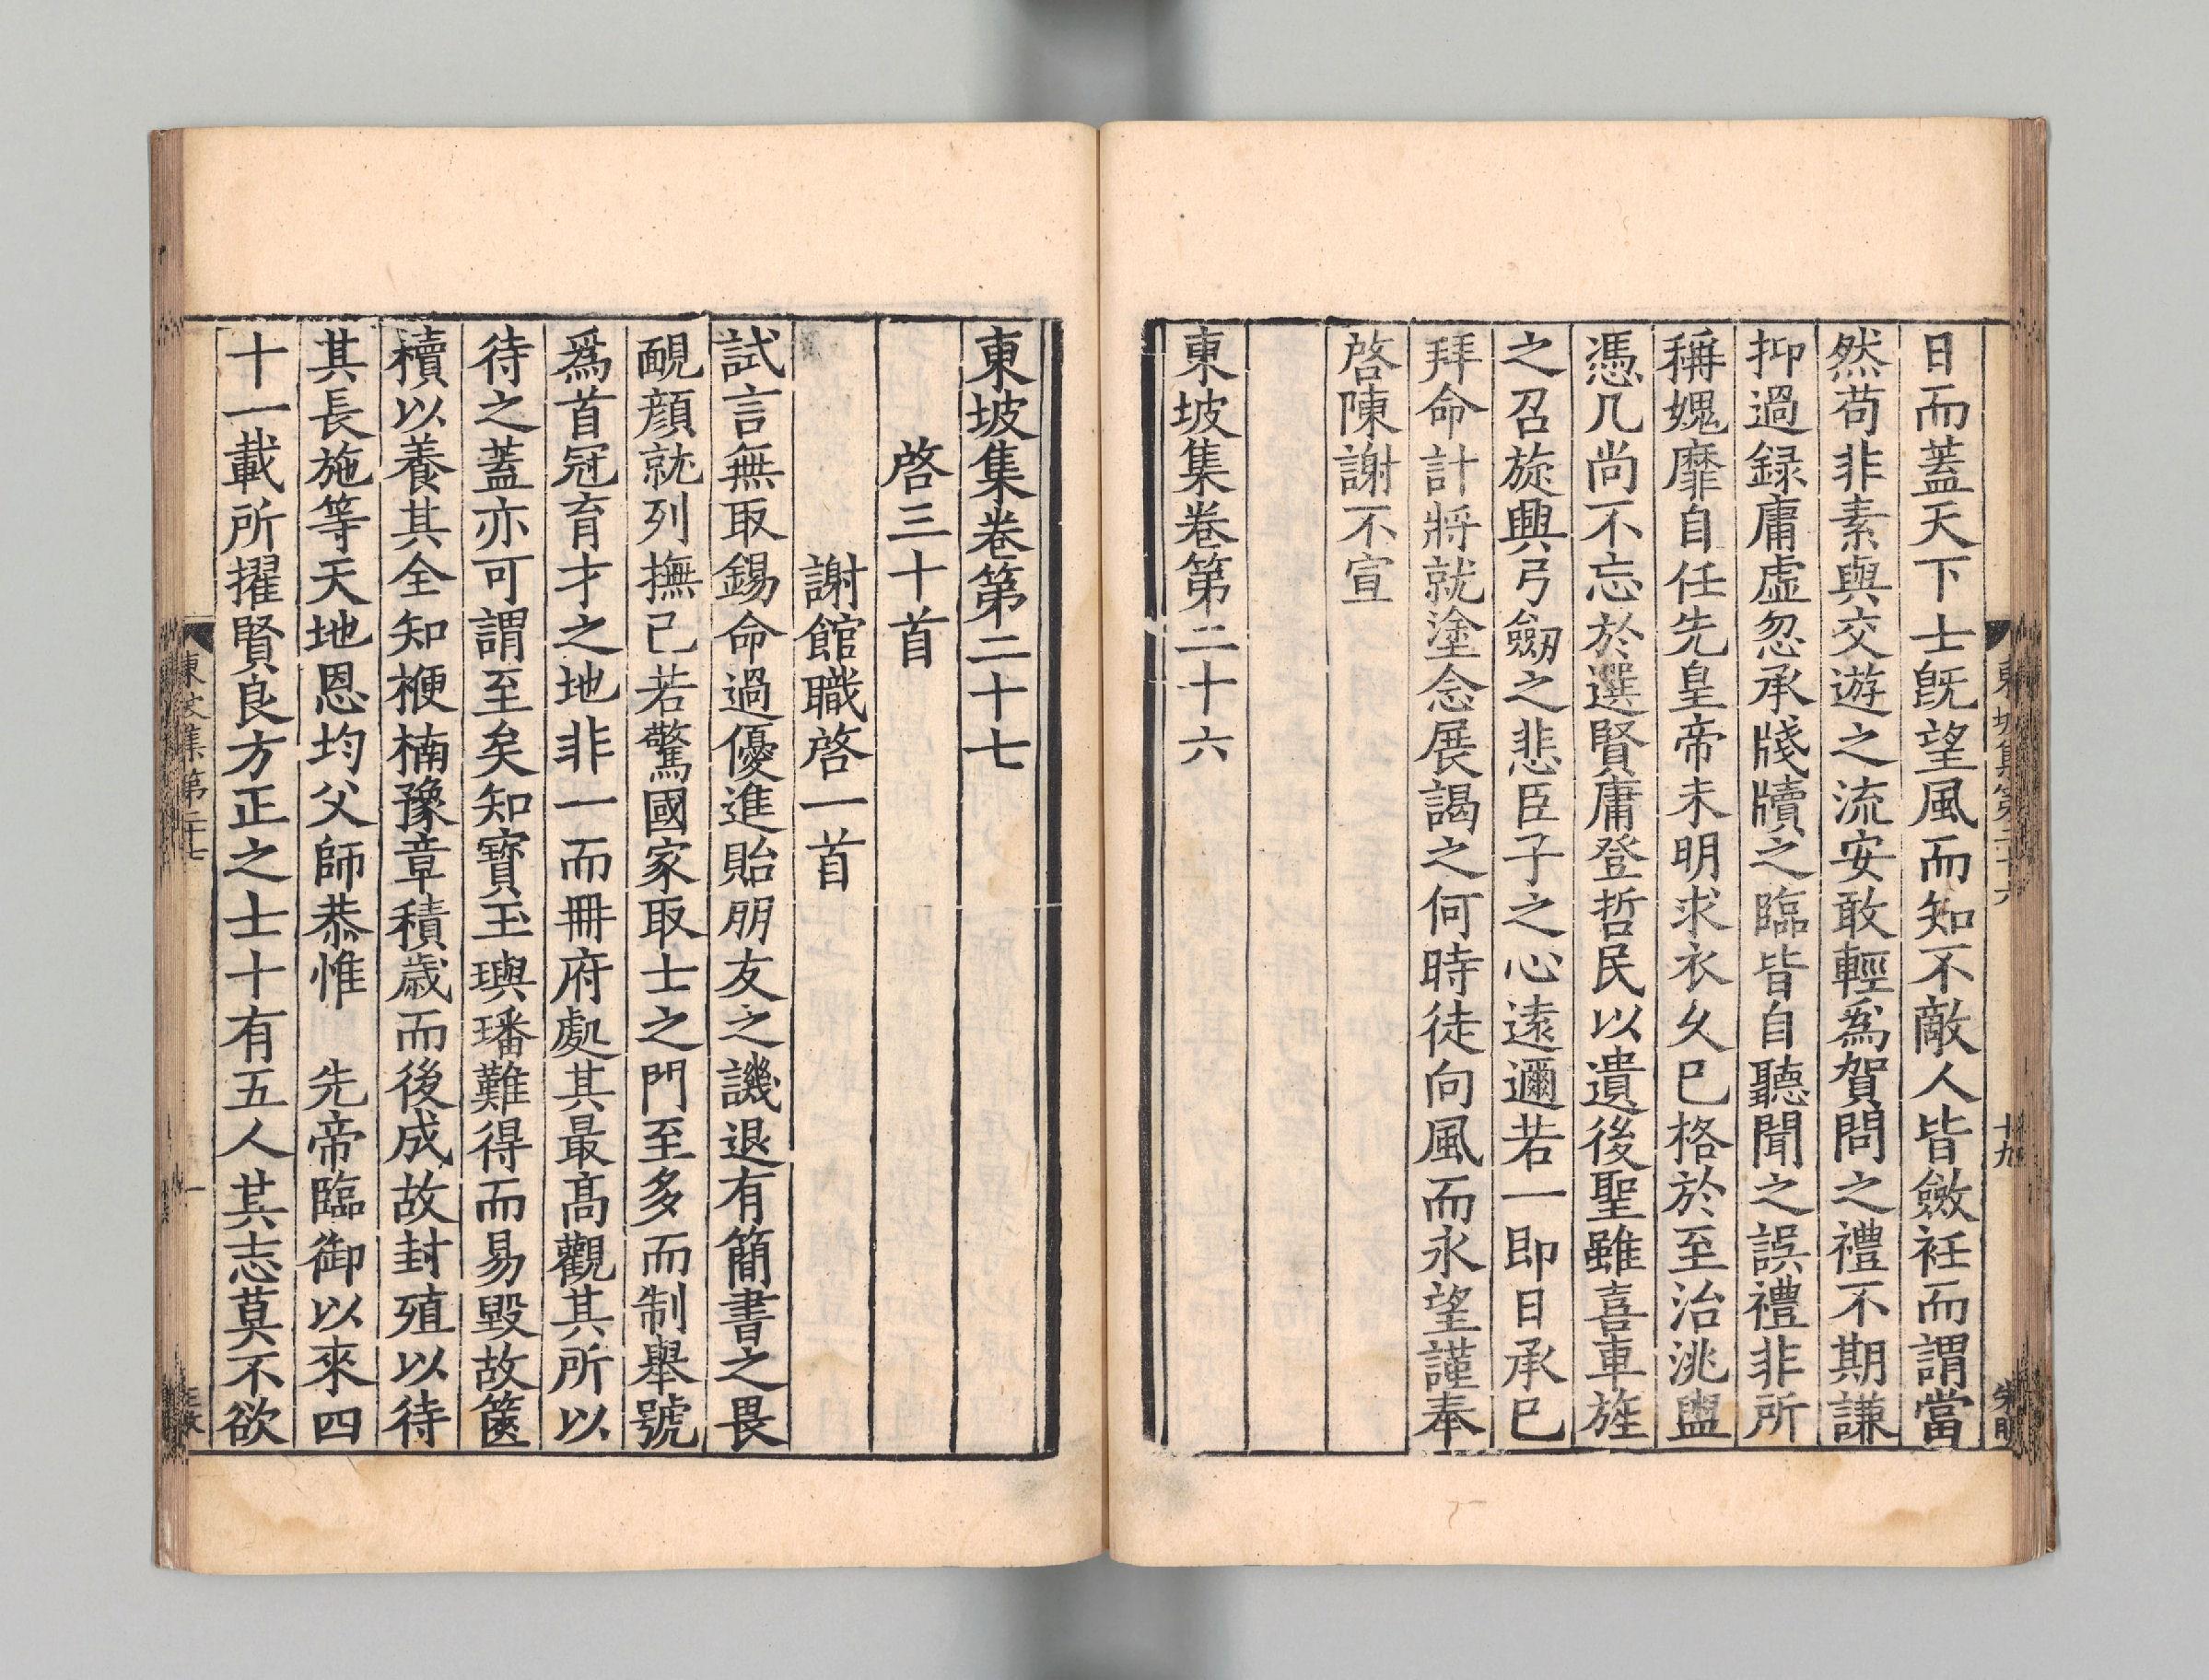 日而蓋天下士旣望風而知不敵人皆斂衽而謂當
然苟非素與交遊之流安敢輕爲賀問之禮不期謙
抑過録庸虛忽承牋牘之臨皆自聽聞之誤禮非所
稱媿靡自任先皇帝未明求衣久已格於至治洮盥
憑几尚不忘於選賢庸登哲民以遺後聖雖喜車旌
之召旋興弓劒之悲臣子之心遠邇若一即日承已
拜命計將就塗念展謁之何時徒向風而永望謹奉
啓陳謝不宣
東坡集卷第二十六
東坡集第二十六
十九
東坡集卷第二十七
啓三十首
謝館職啓一首
試言無取錫命過優進貽朋友之譏退有簡書之畏
靦顔就列撫己若驚國家取士之門至多而制舉號
爲首冠育才之地非一而冊府處其最髙觀其所以
待之蓋亦可謂至矣知寳玉璵璠難得而易毀故篋
櫝以養其全知楩楠豫章積歲而後成故封殖以待
其長施等天地恩均父師恭惟　先帝臨御以來四
十一載所擢賢良方正之士十有五人其志莫不欲
東坡集第二十七
一